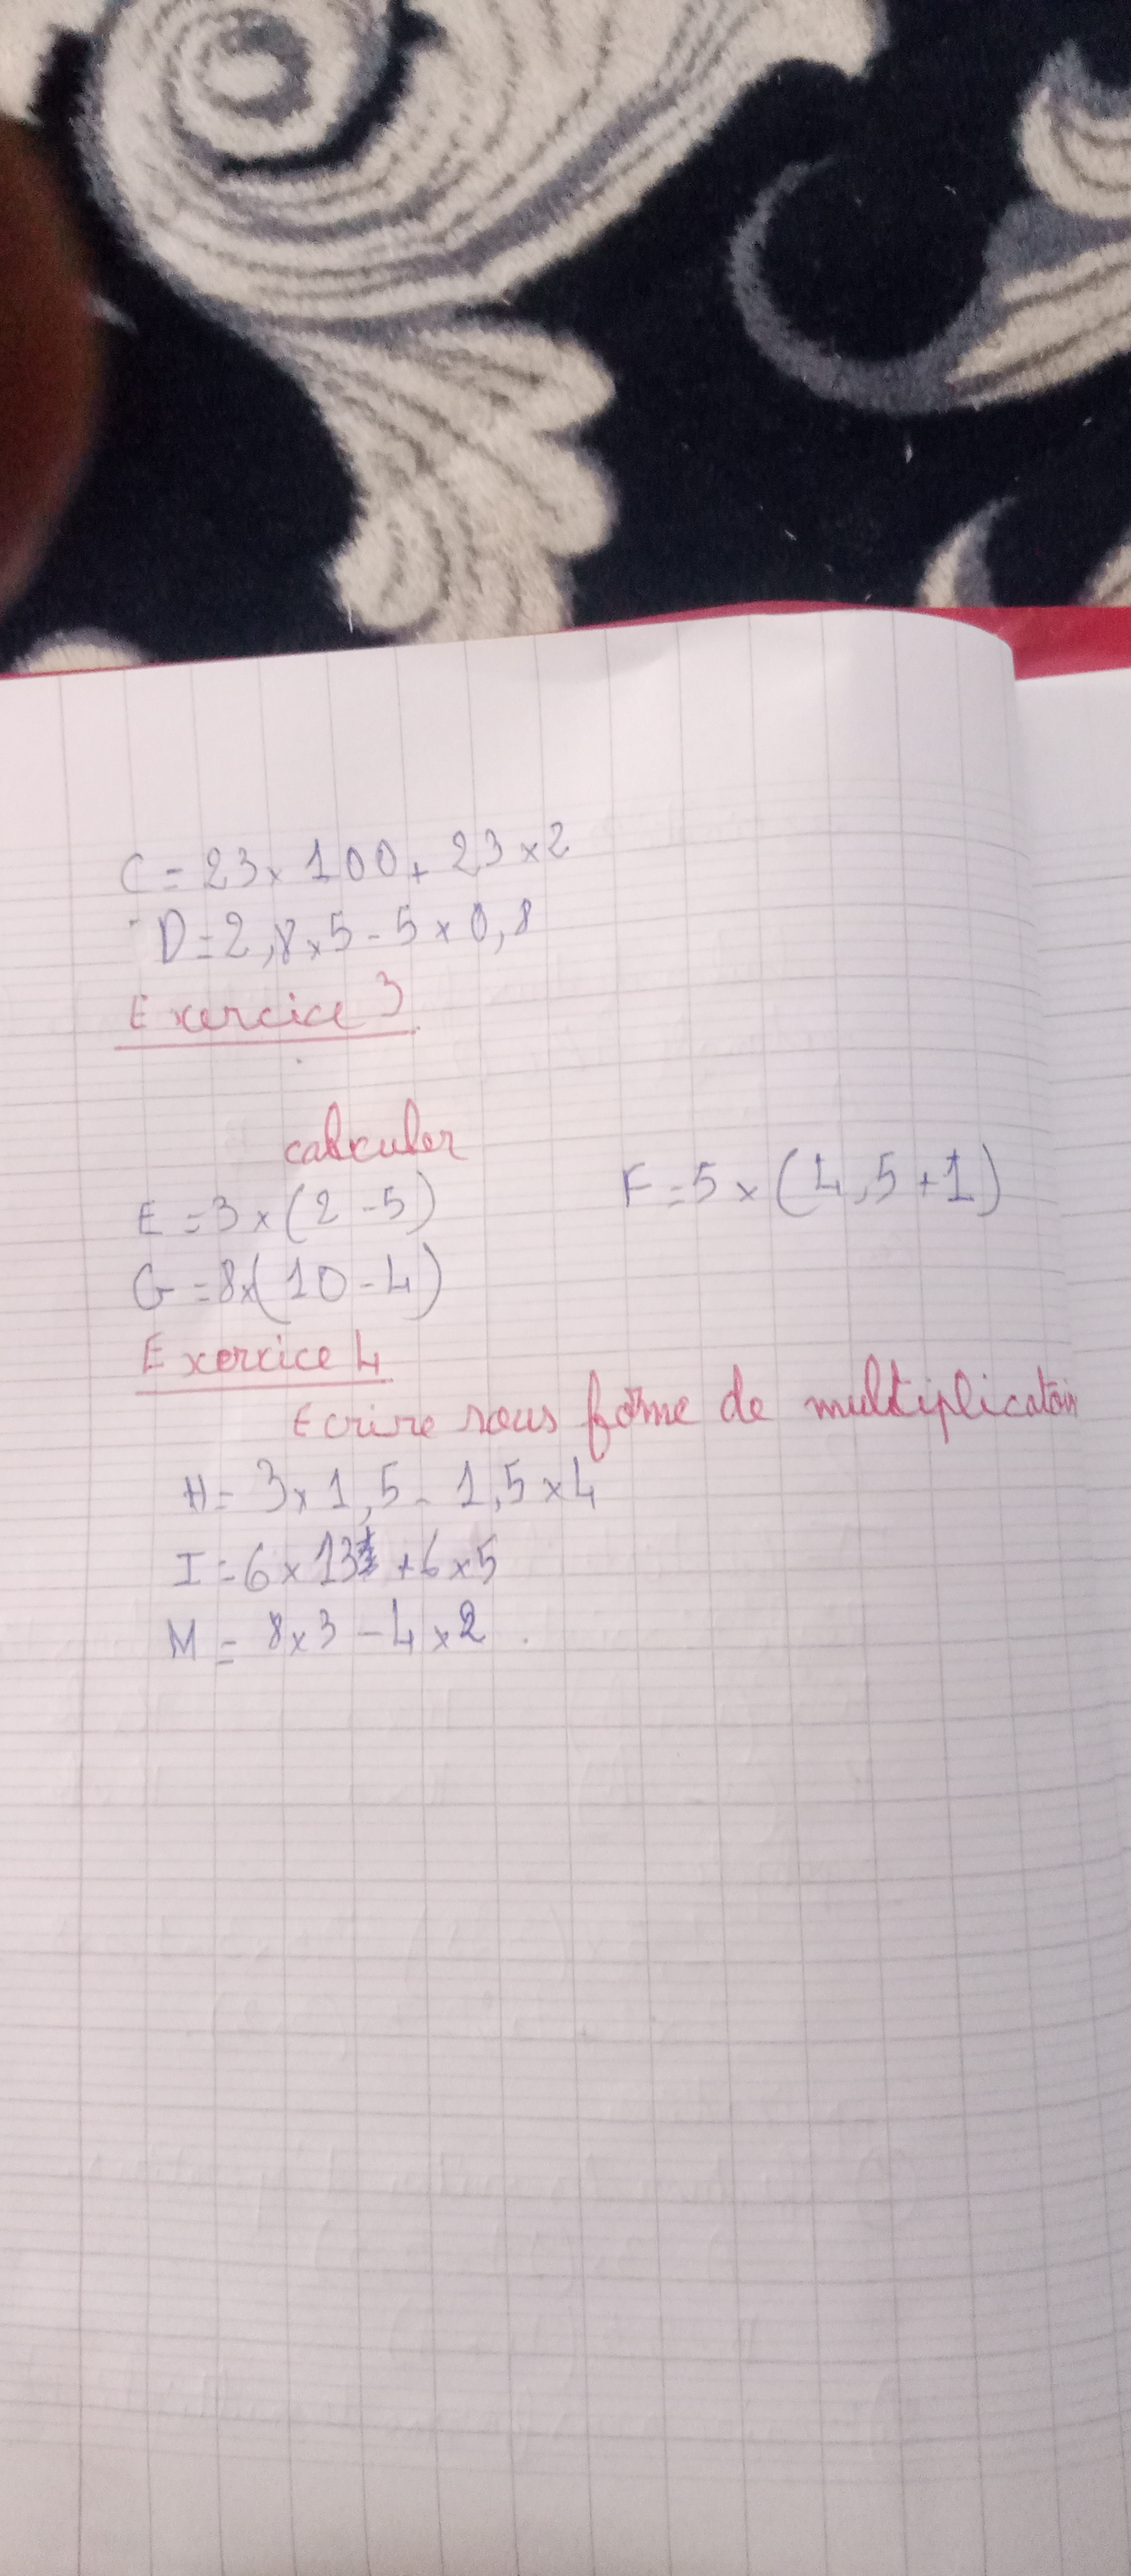 C = 23 × 100 + 23 × 2
D = 2,8 × 5 - 5 × 0,8
Exercice 3
calculer
E = 3 × (2 - 5) F = 5 × (4,5 + 1)
G = 8 × (10 - 4)
Exercice 4
Ecrire sous forme de multiplication
H = 3 × 1,5 - 1,5 × 4
I = 6 × 13 + 6 × 5
M = 8 × 3 - 4 × 2